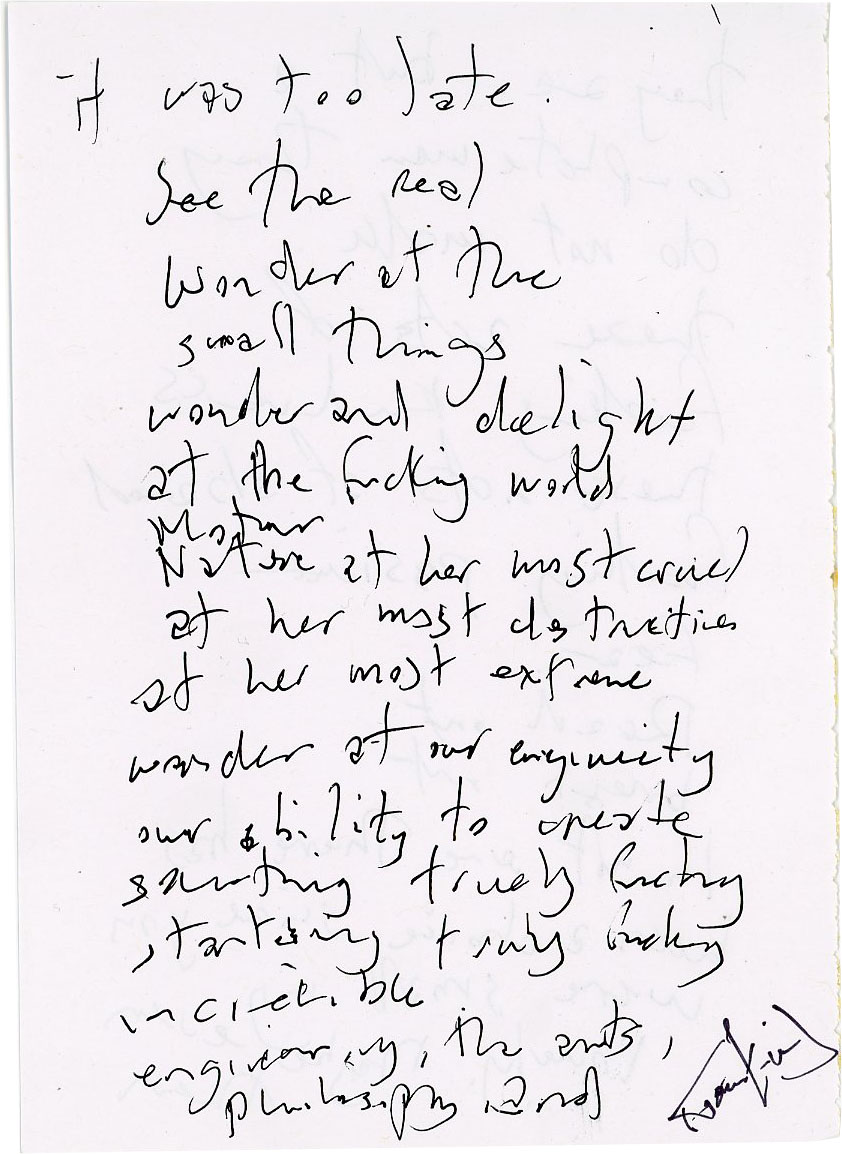 it was too late.
See the real
wonder at the
small things
wonder and delight
at the fucking world
Nature at her most cruel
at her most destructive
at her most extreme
wonder at our enginuity
our ability to create
something truely fucking
startling truly fucking
incredible
engineering, the arts,
philosophy and